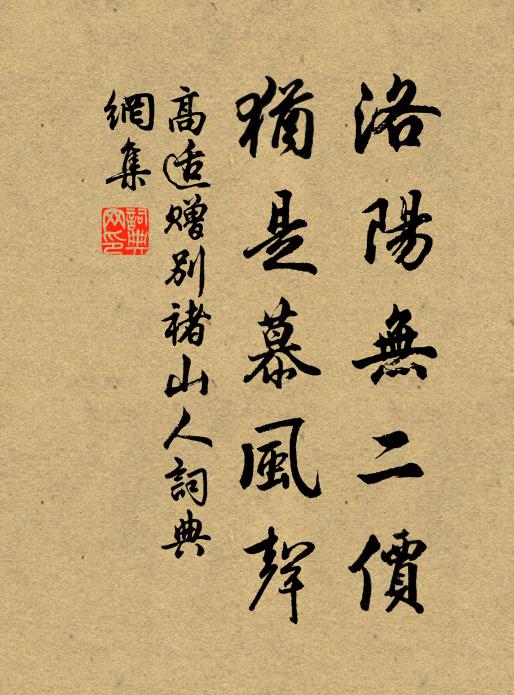 洛陽無二價
猶是慕風聲
高适赠别褚山人詞典
網集
詞典
网印